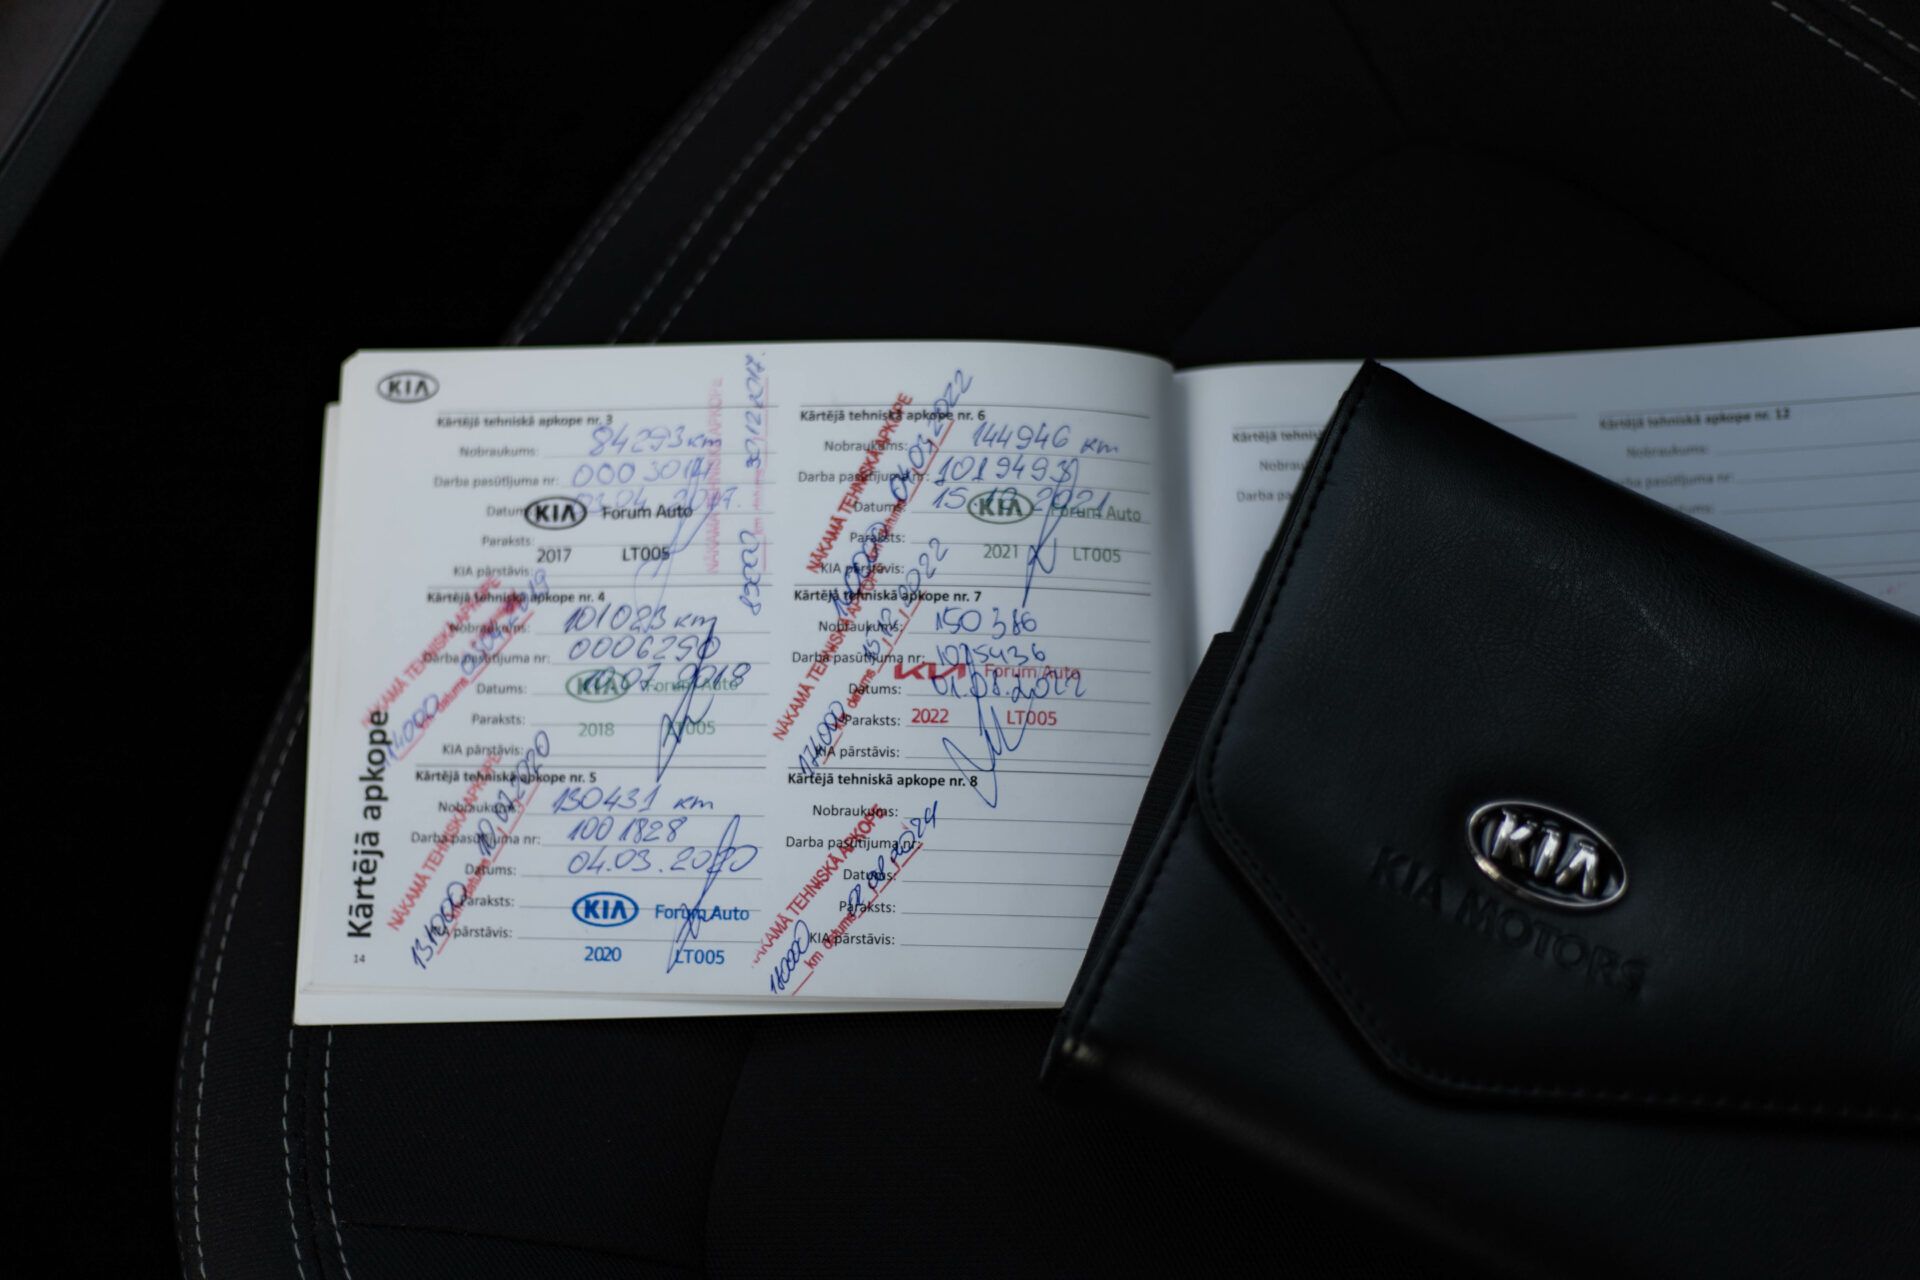 KIA
Kārtējā tehniskā apkope nr. 3
Nobraukums: 84293 km
Darba pasūtījuma nr: 000 3014
Datums: 03.04.2017.
KIA Forum Auto
Paraksts:
2017 LT005
KIA pārstāvis:
NĀKAMĀ TEHNISKĀ APKOPE
85000 km datums 30.12.2017.
Kārtējā tehniskā apkope nr. 4
Nobraukums: 101023 km
Darba pasūtījuma nr: 0006290
Datums: 07.2018
KIA Forum Auto
Paraksts:
2018 LT005
KIA pārstāvis:
NĀKAMĀ TEHNISKĀ APKOPE
datums
Kārtējā tehniskā apkope nr. 5
Nobraukums: 130431 km
Darba pasūtījuma nr: 1001828
Datums: 04.03.2020
Paraksts: KIA Forum Auto
KIA pārstāvis:
2020 LT005
NĀKAMĀ TEHNISKĀ APKOPE
datums
Kārtējā apkope
14
Kārtējā tehniskā apkope nr. 6
Nobraukums: 144946 km
Darba pasūtījuma nr: 1019493
Datums: 15.10.2021
KIA Forum Auto
Paraksts:
2021 LT005
KIA pārstāvis:
NĀKAMĀ TEHNISKĀ APKOPE
datums 04.03.2022
Kārtējā tehniskā apkope nr. 7
Nobraukums: 150386
Darba pasūtījuma nr: 1025436
KIA Forum Auto
Datums: 01.08.2022
Paraksts: 2022 LT005
KIA pārstāvis:
NĀKAMĀ TEHNISKĀ APKOPE
datums 2022
Kārtējā tehniskā apkope nr. 8
Nobraukums:
Darba pasūtījuma nr:
Datums:
Paraksts:
KIA pārstāvis:
NĀKAMĀ TEHNISKĀ APKOPE
km datums 2024
Kārtējā tehniskā apkope nr. 12
Nobraukums:
Darba pasūtījuma nr:
KIA
KIA MOTORS